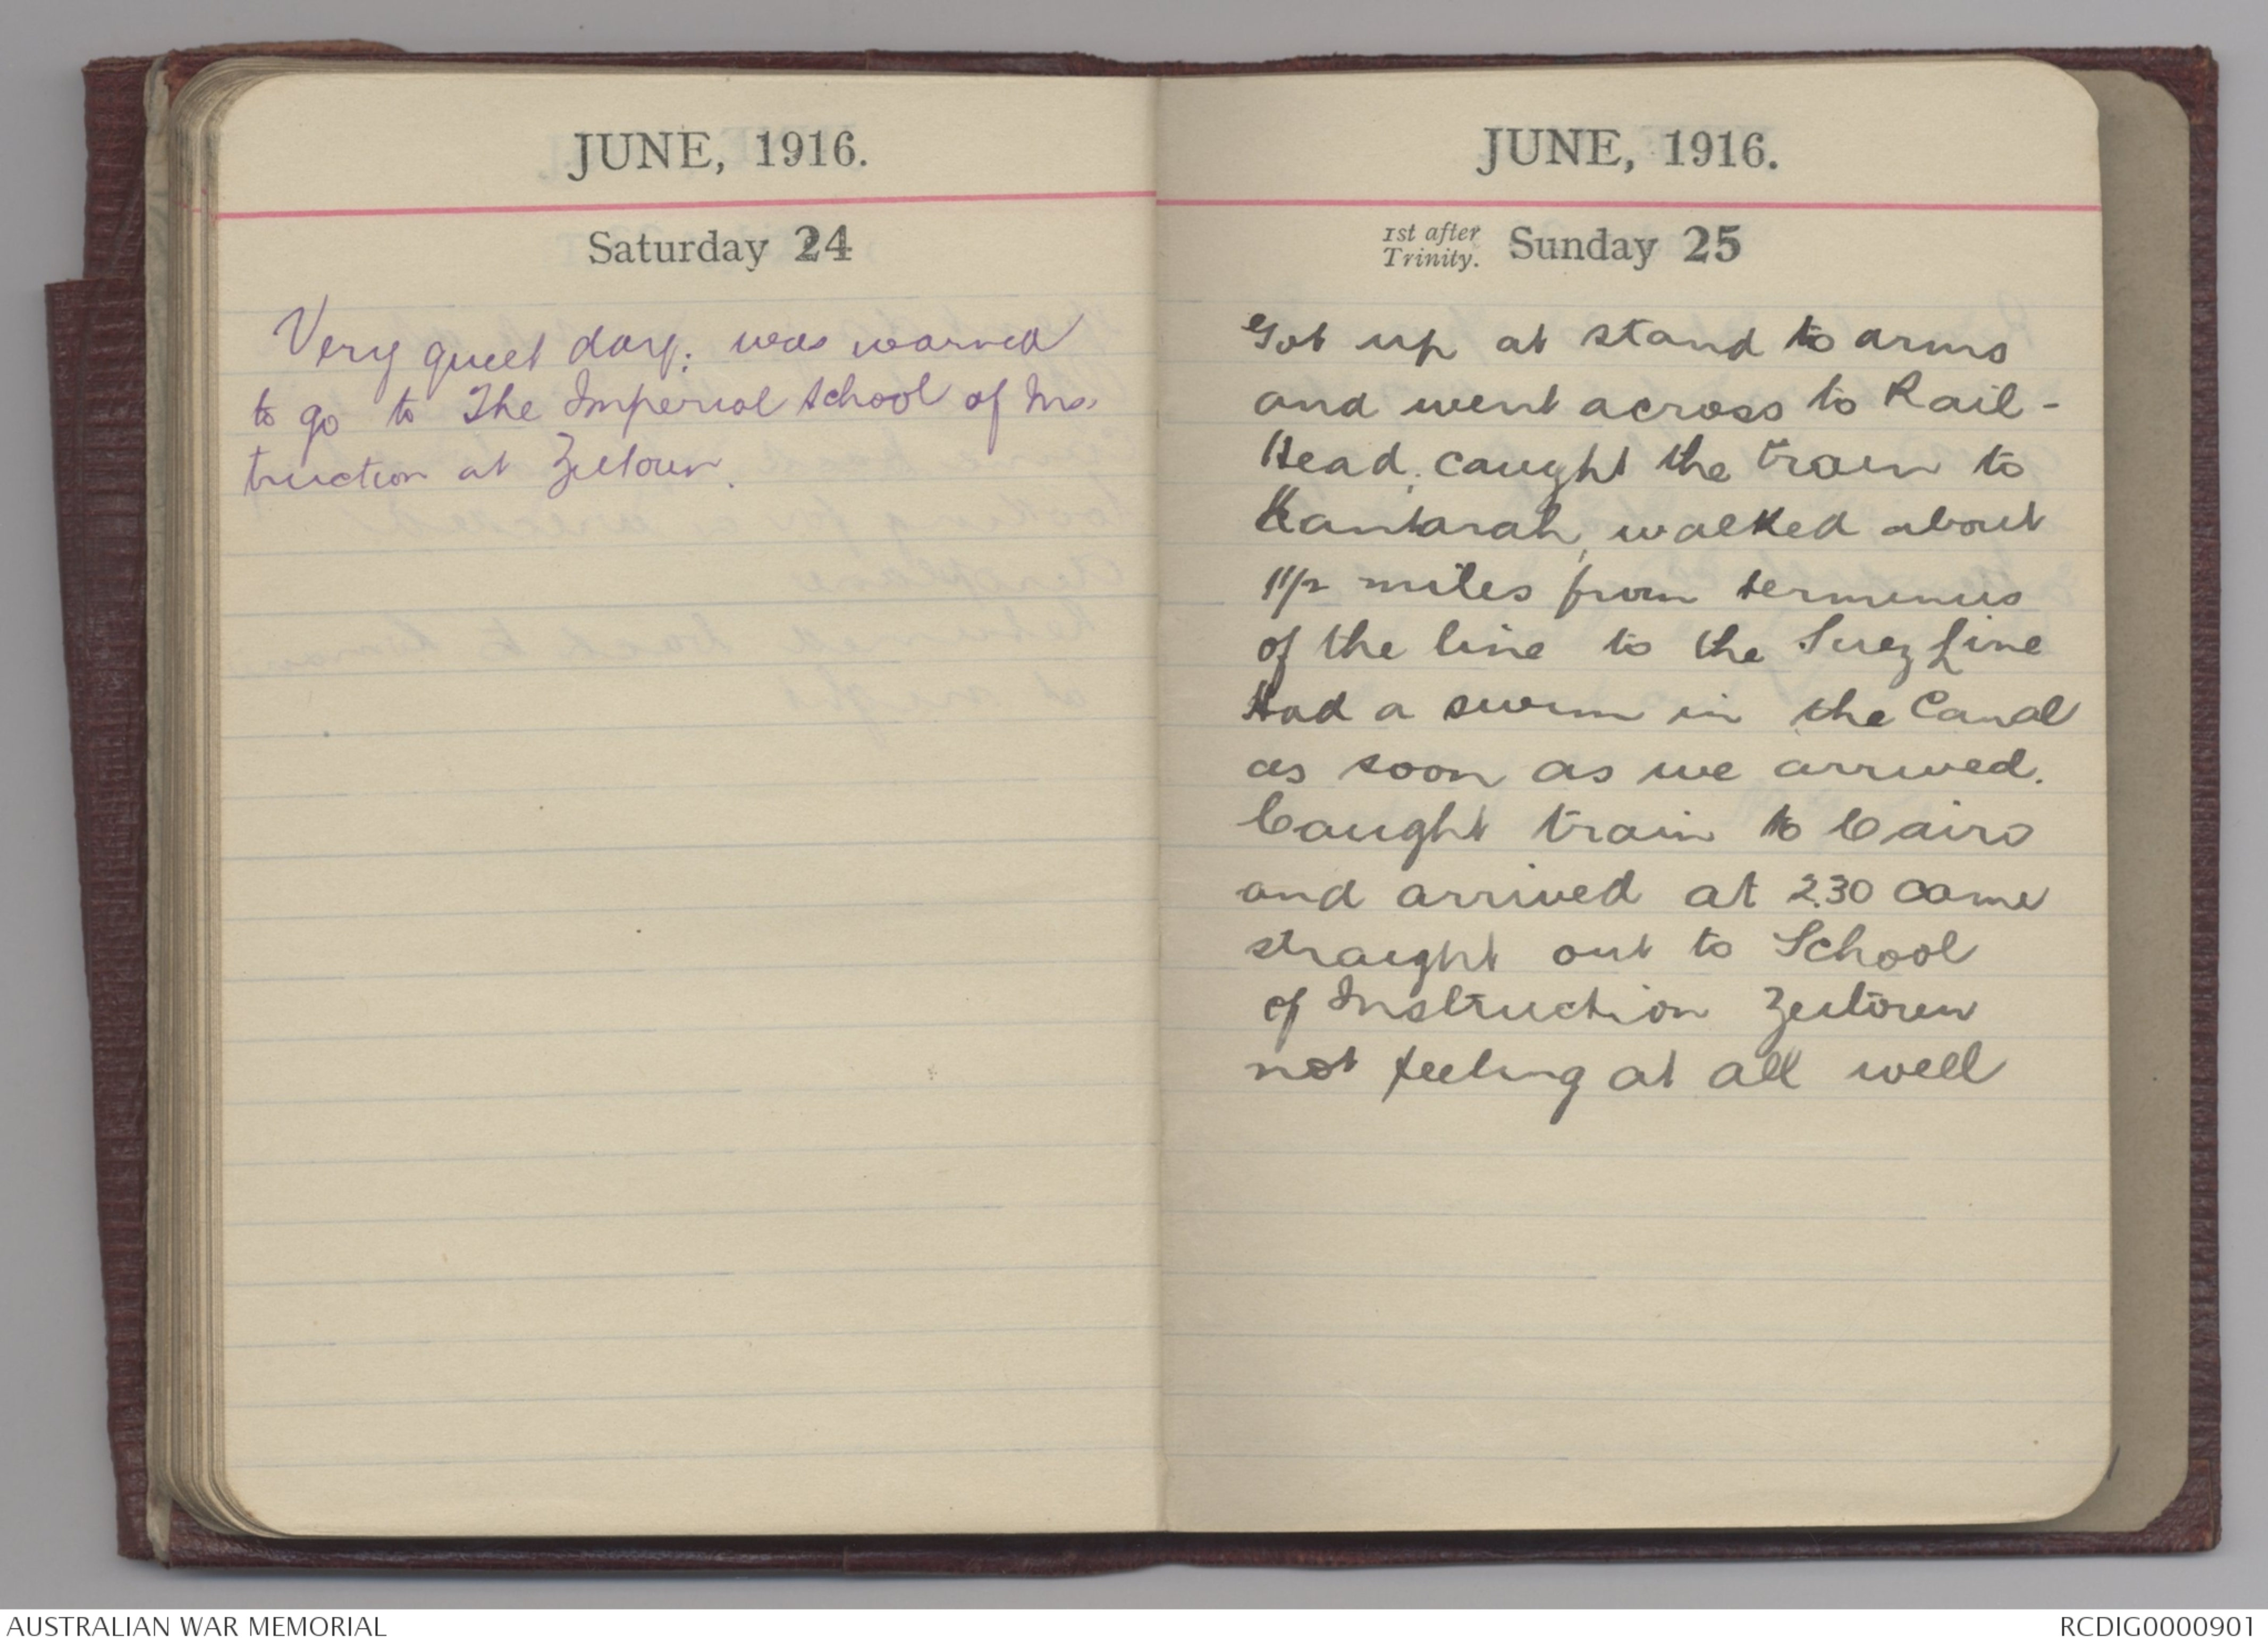 JUNE, 1916.
Saturday 24
Very quiet day; was warned
to go to The Imperial School of Ins-
truction at Zeitoun.
JUNE, 1916.
1st after Trinity. Sunday 25
Got up at stand to arms
and went across to Rail-
Head, caught the train to
Kantarah, walked about
1½ miles from terminus
of the line to the Suez Line
Had a swim in the Canal
as soon as we arrived.
Caught train to Cairo
and arrived at 2.30 came
straight out to School
of Instruction Zeitoun
not feeling at all well
AUSTRALIAN WAR MEMORIAL
RCDIG0000901